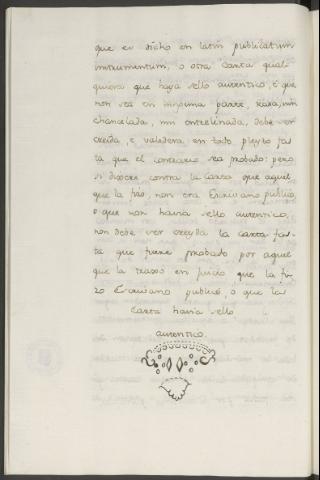 que es dicho en latin publicatum
instrumentum, o otra Carta qual
quiera que haya sello autentico, è que
non sea en ninguna parte, raxa, nin
chancelada, nin entrelinada, debe ser
creida, e valedera en todo pleyto fas
ta que el contrario sea probado: pero
si dixere contra la Carta que aquel
que la fizo, non era Escrivano publico
o que non havia sello autentico,
non debe ser creyda la carta fas
ta que fuere probado por aquel
que la traxo en juicio, que la fi
zo Escrivano publico, o que la
Carta havia sello
autentico.